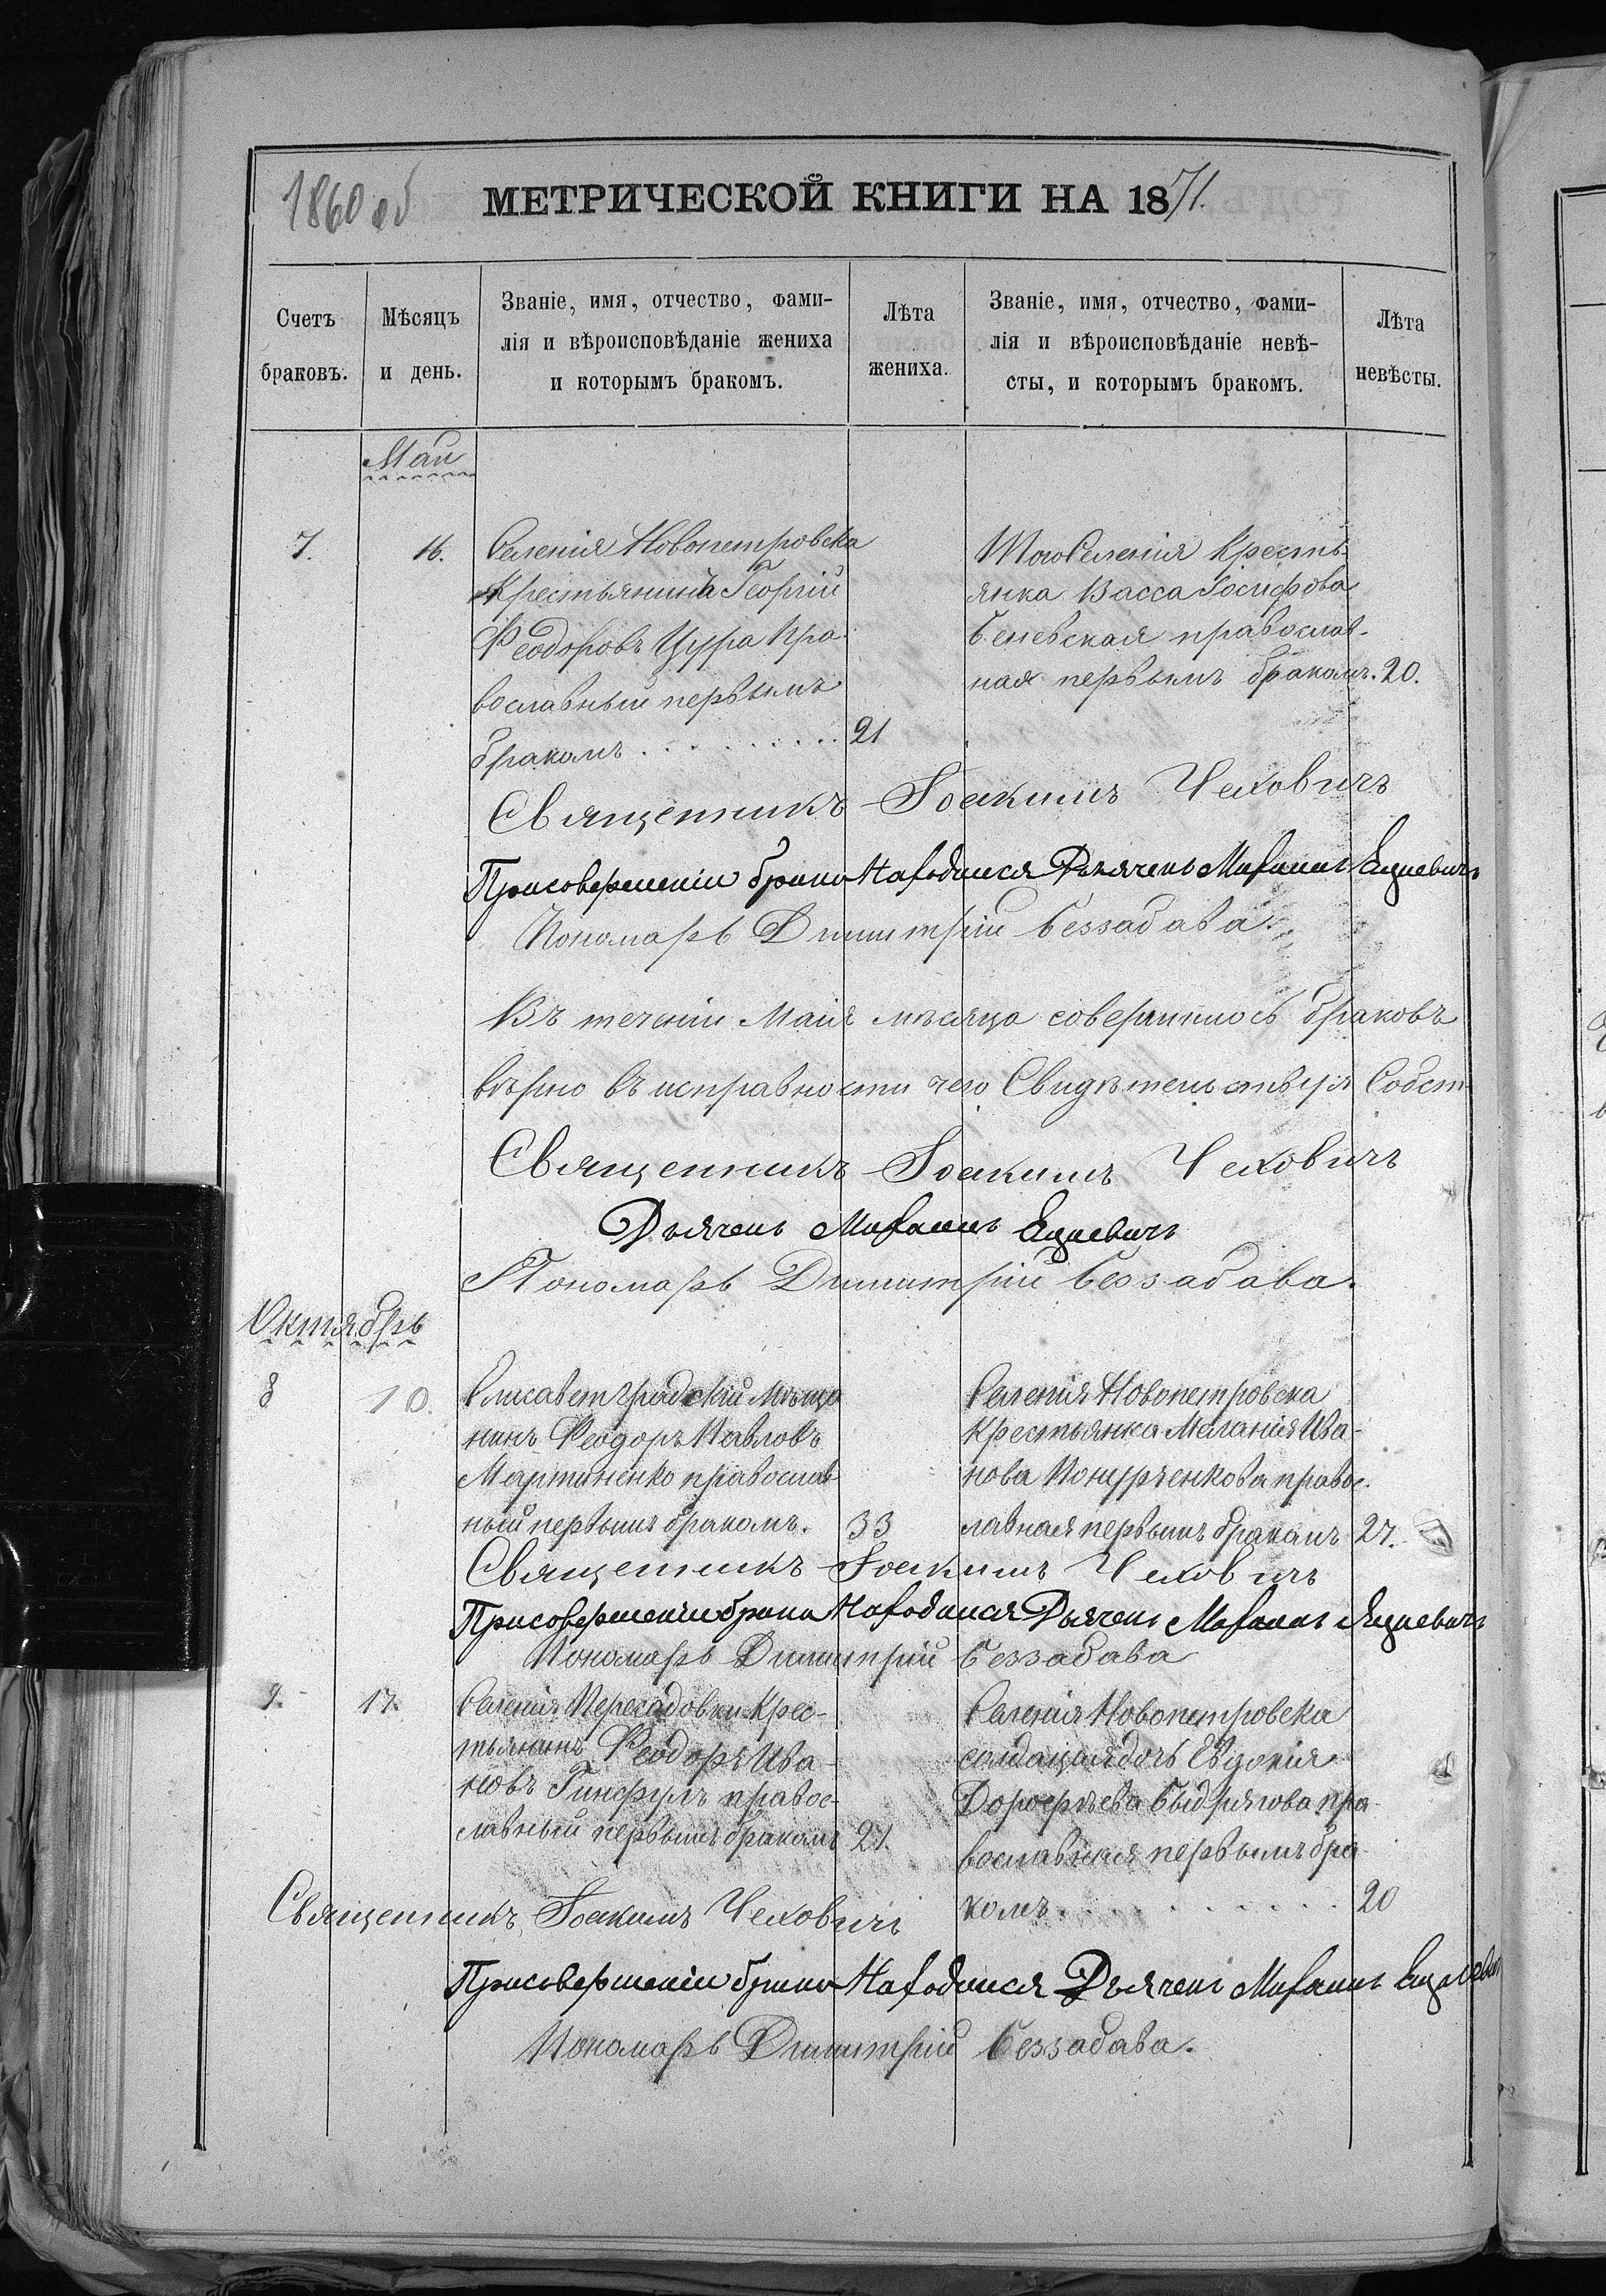 1860 об
МЕТРИЧЕСКОЙ КНИГИ НА 1871.
Счетъ браковъ.
Мѣсяцъ и день.
Званіе, имя, отчество, фами-
лія и вѣроисповѣданіе жениха
и которымъ бракомъ.
Лѣта жениха.
Званіе, имя, отчество, фами-
лія и вѣроисповѣданіе невѣ-
сты, и которымъ бракомъ.
Лѣта невѣсты.
Май
7.
16.
Селенія Новопетровска
Крестьянинъ Георгій
Феодоровъ Цура Пра-
вославный первымъ
бракомъ . . . . . . . . . 21
Того Селенія Кресть-
янка Васса Іосифова
Беневская православ-
ная первымъ бракомъ. 20.
Священникъ Іоакимъ Чеховичъ
При совершеніи брака Находился Дьячекъ Михаилъ Яцкевичъ
Пономарь Димитрій Беззабава.
Въ теченіи Маія мѣсяца совершилось браковъ
вѣрно въ исправности чего Свидѣтельствуя Собст
Священникъ Іоакимъ Чеховичъ
Дьячекъ Михаилъ Яцкевичъ
Пономарь Димитрій Беззабава.
Октябрь
8
10.
Елисаветградскій Мѣща
нинъ Феодоръ Павловъ
Мартыненко православ
ный первымъ бракомъ. 33
Селенія Новопетровска
Крестьянка Меланія Ива-
нова православ
лавная первымъ бракомъ 27.
Священникъ Іоакимъ Чеховичъ
При совершеніи брака Находился Дьячекъ Михаилъ Яцкевичъ
Пономарь Димитрій Беззабава
9.
17.
Селенія Пересадовки Крес-
тьянинъ Феодоръ Ива-
новъ правос-
лавный первымъ бракомъ 21.
Селенія Новопетровска
солдацкая дочь Евдокія
Дорофѣева пра-
вославная первымъ бра-
комъ . . . . . . . . . . 20
Священникъ Іоакимъ Чеховичъ
При совершеніи брака Находился Дьячекъ Михаилъ Яцкевичъ
Пономарь Димитрій Беззабава.